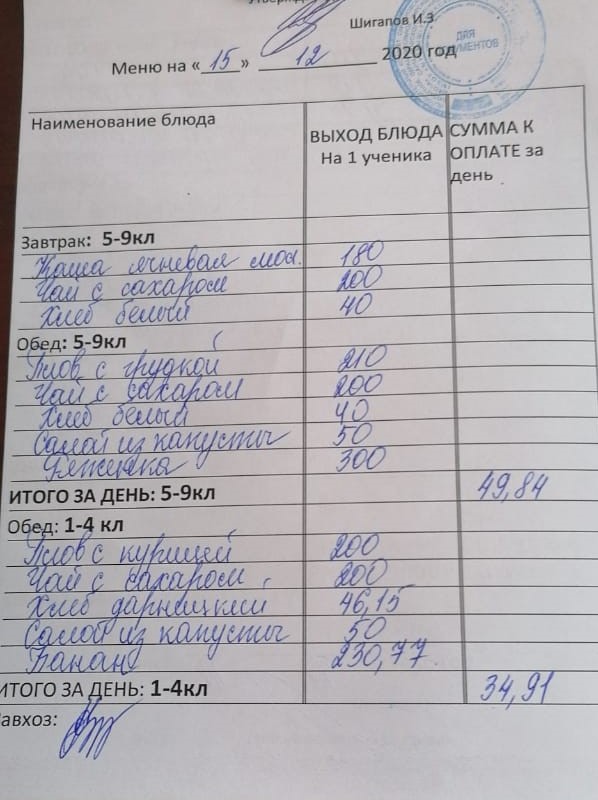 Шигапов И.З.
Меню на «15» 12 2020 год
ДЛЯ
ДОКУМЕНТОВ
Наименование блюда
ВЫХОД БЛЮДА
На 1 ученика
СУММА К
ОПЛАТЕ за
день
Завтрак: 5-9кл
Каша ячневая мол. 180
Чай с сахаром 200
Хлеб белый 40
Обед: 5-9кл
Плов с грудкой 210
Чай с сахаром 200
Хлеб белый 40
Салат из капусты 50
Ряженка 300
ИТОГО ЗА ДЕНЬ: 5-9кл 49,84
Обед: 1-4 кл
Плов с курицей 200
Чай с сахаром 200
Хлеб дарницкий 46,15
Салат из капусты 50
Банан 230,77
ИТОГО ЗА ДЕНЬ: 1-4кл 34,91
Завхоз: